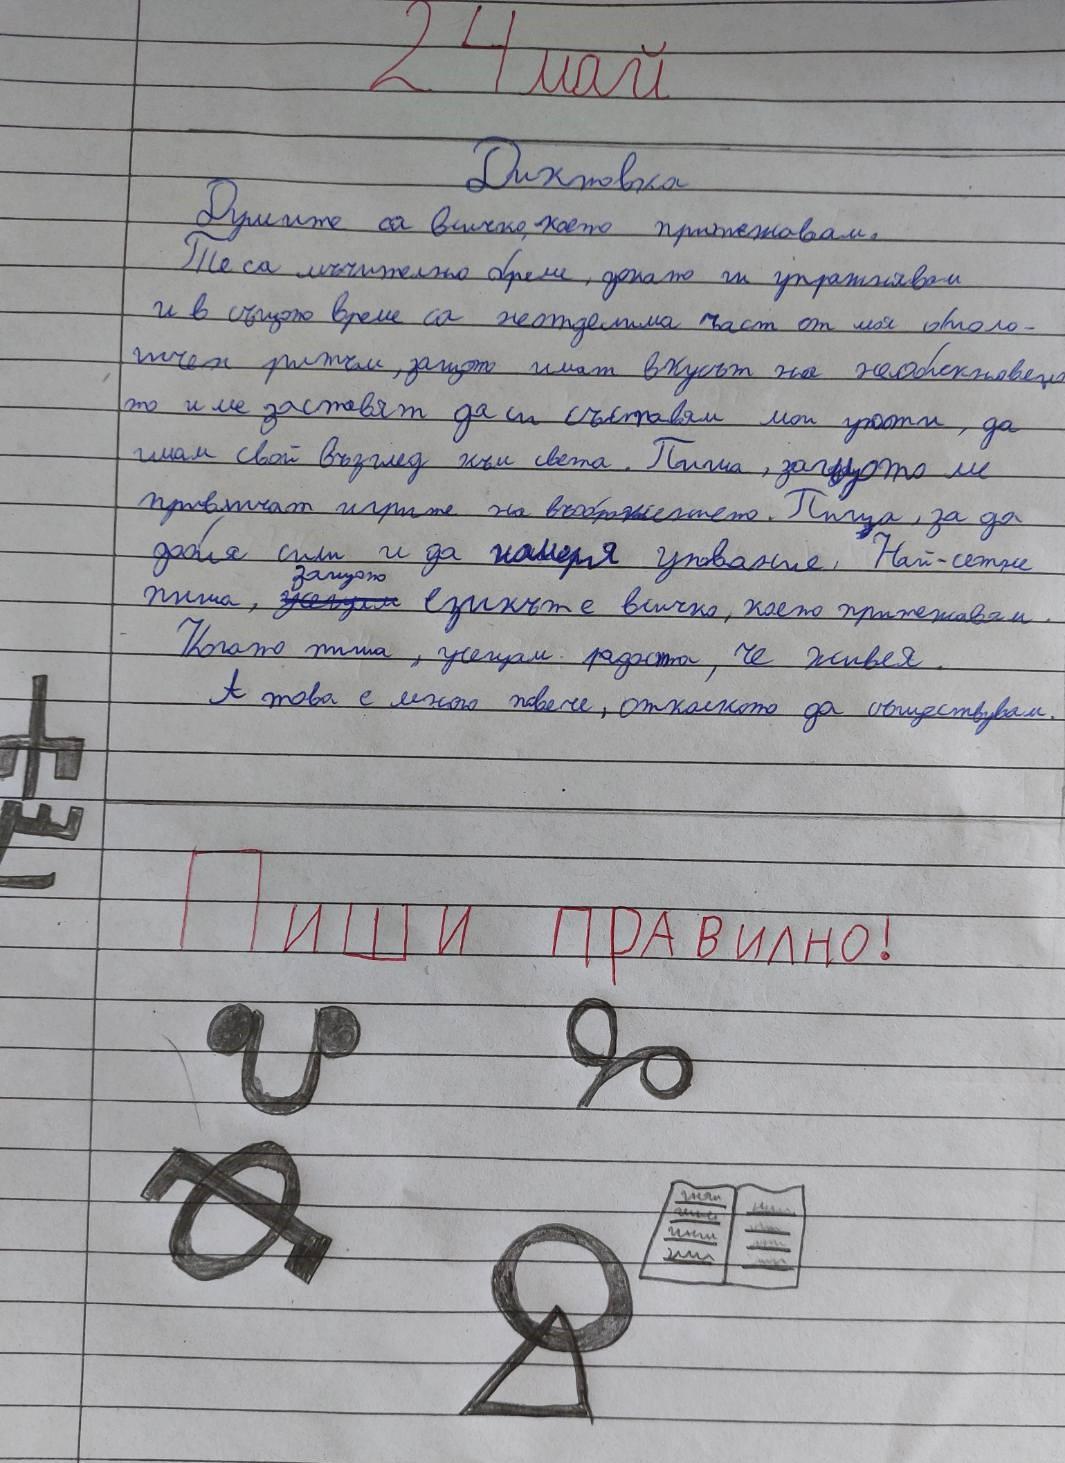 24 май
Диктовка
Думите са всичко, което притежавам.
Те са мъчително бреме, докато ги упражнявам
и в същото време са неотделима част от моя
ритъм, защото имат вкусът на необикновено
то и ме заставят да си съставям мои, да
имам свой възглед към света. Пиша, защото ме
привличат игрите на въображението. Пиша, за да
добия сили и да намеря упование. Най-сетне
защото
пиша, езикът е всичко, което притежавам.
Когато пиша, усещам радостта, че живея.
А това е много повече, отколкото да съществувам.
Пиши правилно!